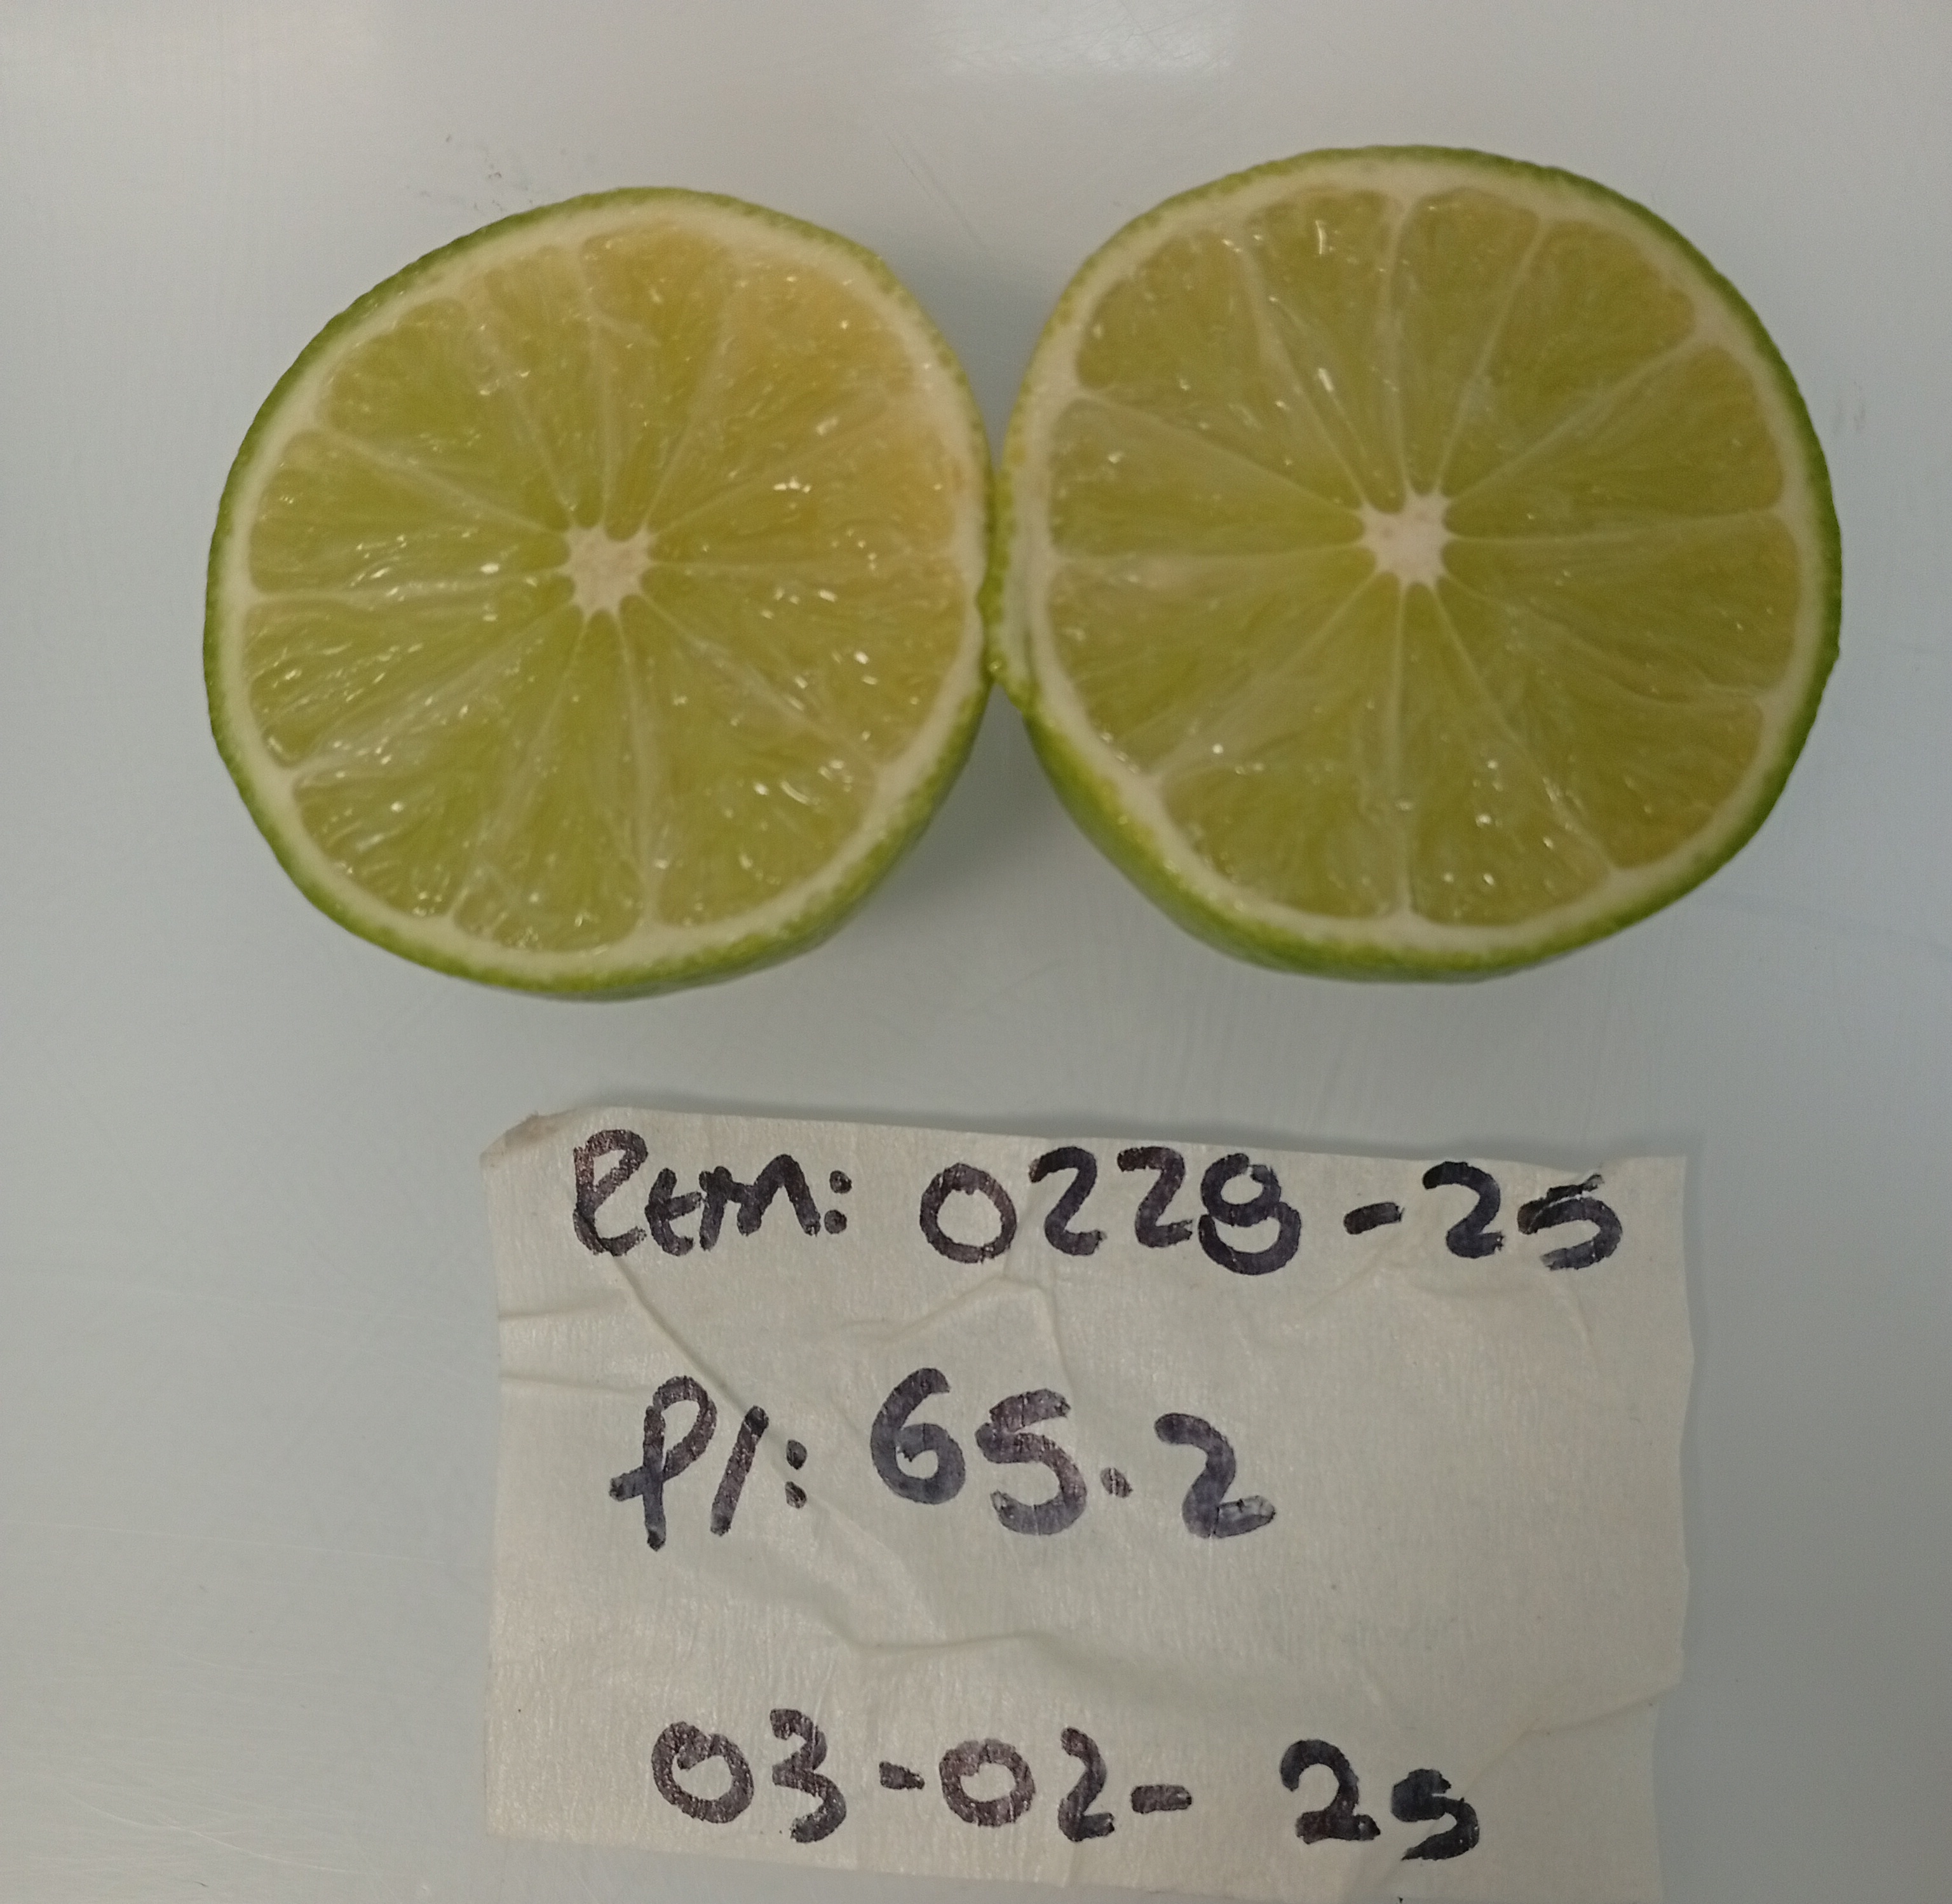 Rem: 0228-25
P/: 65.2
03-02-25